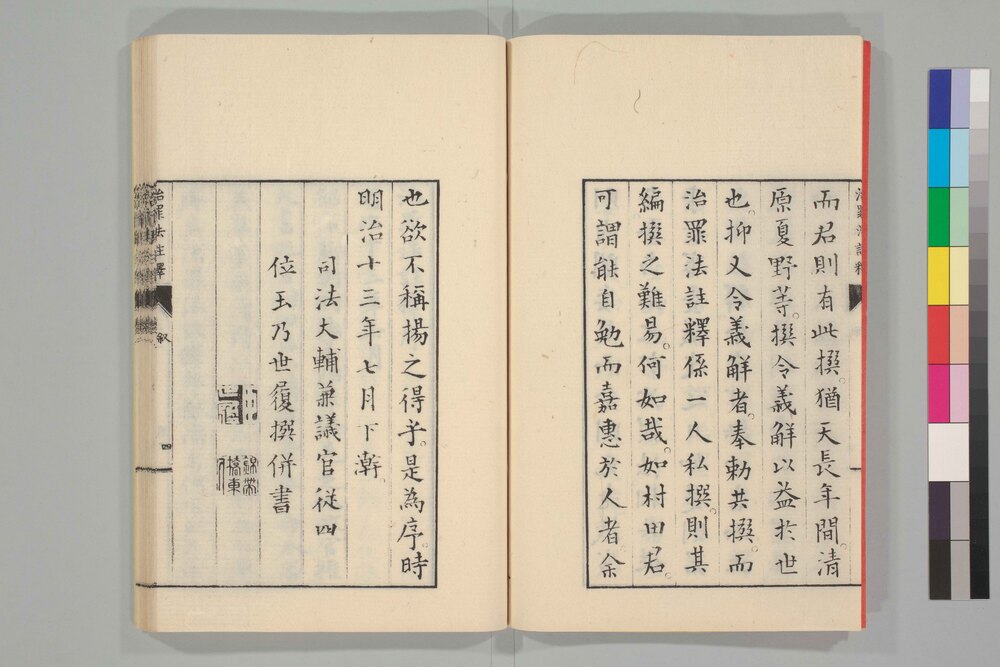 而君則有此撰。猶天長年間。清
原夏野等。撰令義解以益於世
也。抑又令義解者。奉勅共撰。而
治罪法註釋係一人私撰。則其
編撰之難易。何如哉。如村田君。
可謂能自勉而嘉惠於人者。余
也欲不稱揚之得乎。是為序。時
明治十三年七月下澣。
司法大輔兼議官從四
位玉乃世履撰併書
治罪法註釋
叙
四